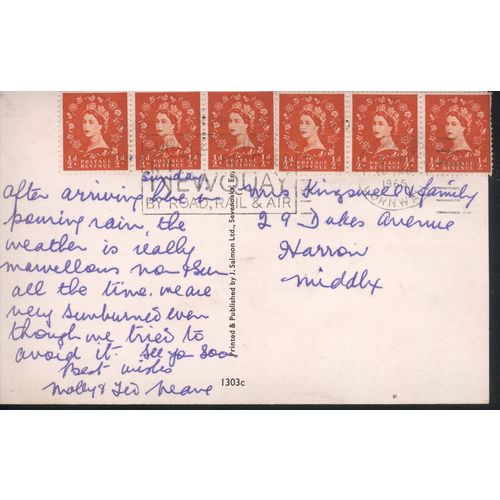 ½d POSTAGE REVENUE ½d
½d POSTAGE REVENUE ½d
½d POSTAGE REVENUE ½d
½d POSTAGE REVENUE ½d
½d POSTAGE REVENUE ½d
½d POSTAGE REVENUE ½d
NEWQUAY
BY ROAD, RAIL & AIR
1965
CORNWALL
Sunday
After arriving here in
pouring rain, the
weather is really
marvellous now & sun
all the time. we are
very sunburned even
though we tried to
avoid it. See you soon
Best wishes
Molly & Ted
Printed & Published by J. Salmon Ltd., Sevenoaks, Eng
1303c
Mrs Kingswell & family
29 Dukes Avenue
Harrow
Middlx